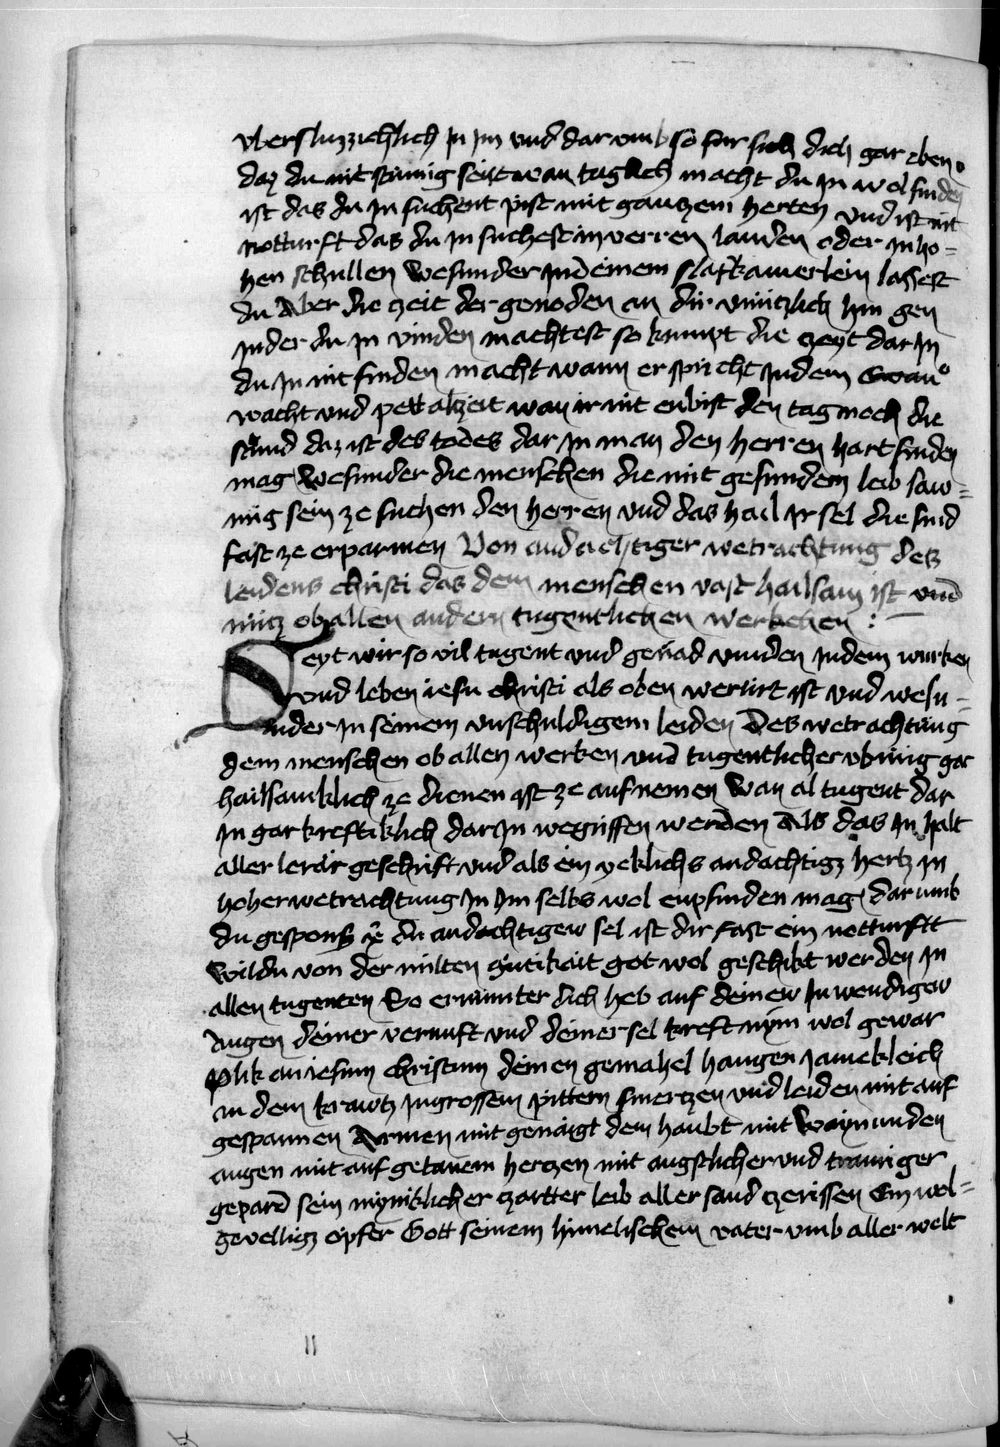 vbersluzzichlich in im vnd dar vmb so fur sich dich gar eben
daz du nit sawmig seist wan taglich macht du in wol finden
ist das du in suchent pist mit ganczem herten vnd ist nit
notturft das du in suchest in verren landen oder in ho=
hen schullen wesunder in deinem slafkamerlein lassest
du Aber die zeit der genoden an dir vnnützlich hin gen
in der du in vinden machtest so kumpt die zeyt dar in
du in nit finden macht wann er spricht in dem Ewan°
wacht vnd pett alzeit wan ir nit enbist den tag noch die
stund daz ist des todes dar in man den herren hart finden
mag wesunder die menschen die mit gesundem leib saw=
mig sein ze suchen den herren vnd das hail ir sel die sind
fast ze erparmen Von andachtiger wetrachtung dez
leidens christi das dem menschen vast hailsam ist vnd
nütz ob allen andern tugentlichen werkchen :
Seyt wir so vil tugent vnd genad vinden in dem wurken
vnd leben iesu christi als oben werürt ist vnd wesu=
nder in seinem vnschuldigem leiden Des wetrachtung
dem menschen ob allen werken vnd tugentlicher vbung gar
hailsamklich ze dienen ist ze aufnemen Wan al tugent dar
in gar kreftiklich dar in wegriffen werden Als das in halt
aller lerär geschrift vnd als ein yeklichs andachtigz hertz in
hoher wetrachtung in im selbs wol enpfinden mag dar vmb
du gespons xp̄i du andachtigew sel ist dir fast ein notturft
Wildu von der milten gütikait got wol geschikt werden in
allen tugenten So ermunter dich heb auf deinew inwendigew
Augen deiner vernuft vnd deiner sel kreft nym wol gewar
plik an iesum christum deinen gemahel hangen iamerkleich
an dem krawtz in grossem pittern smertzen vnd leiden mit auf
gespannen Armen mit genaigt dem haubt mit waynunden
augen mit auf getanem hertzen mit angstlicher vnd trauriger
gepard sein mynniklicher zartter leib aller sand zerissen Ein wol=
gevelligz opfer Gott seinem himelischem vater vmb aller welt
11